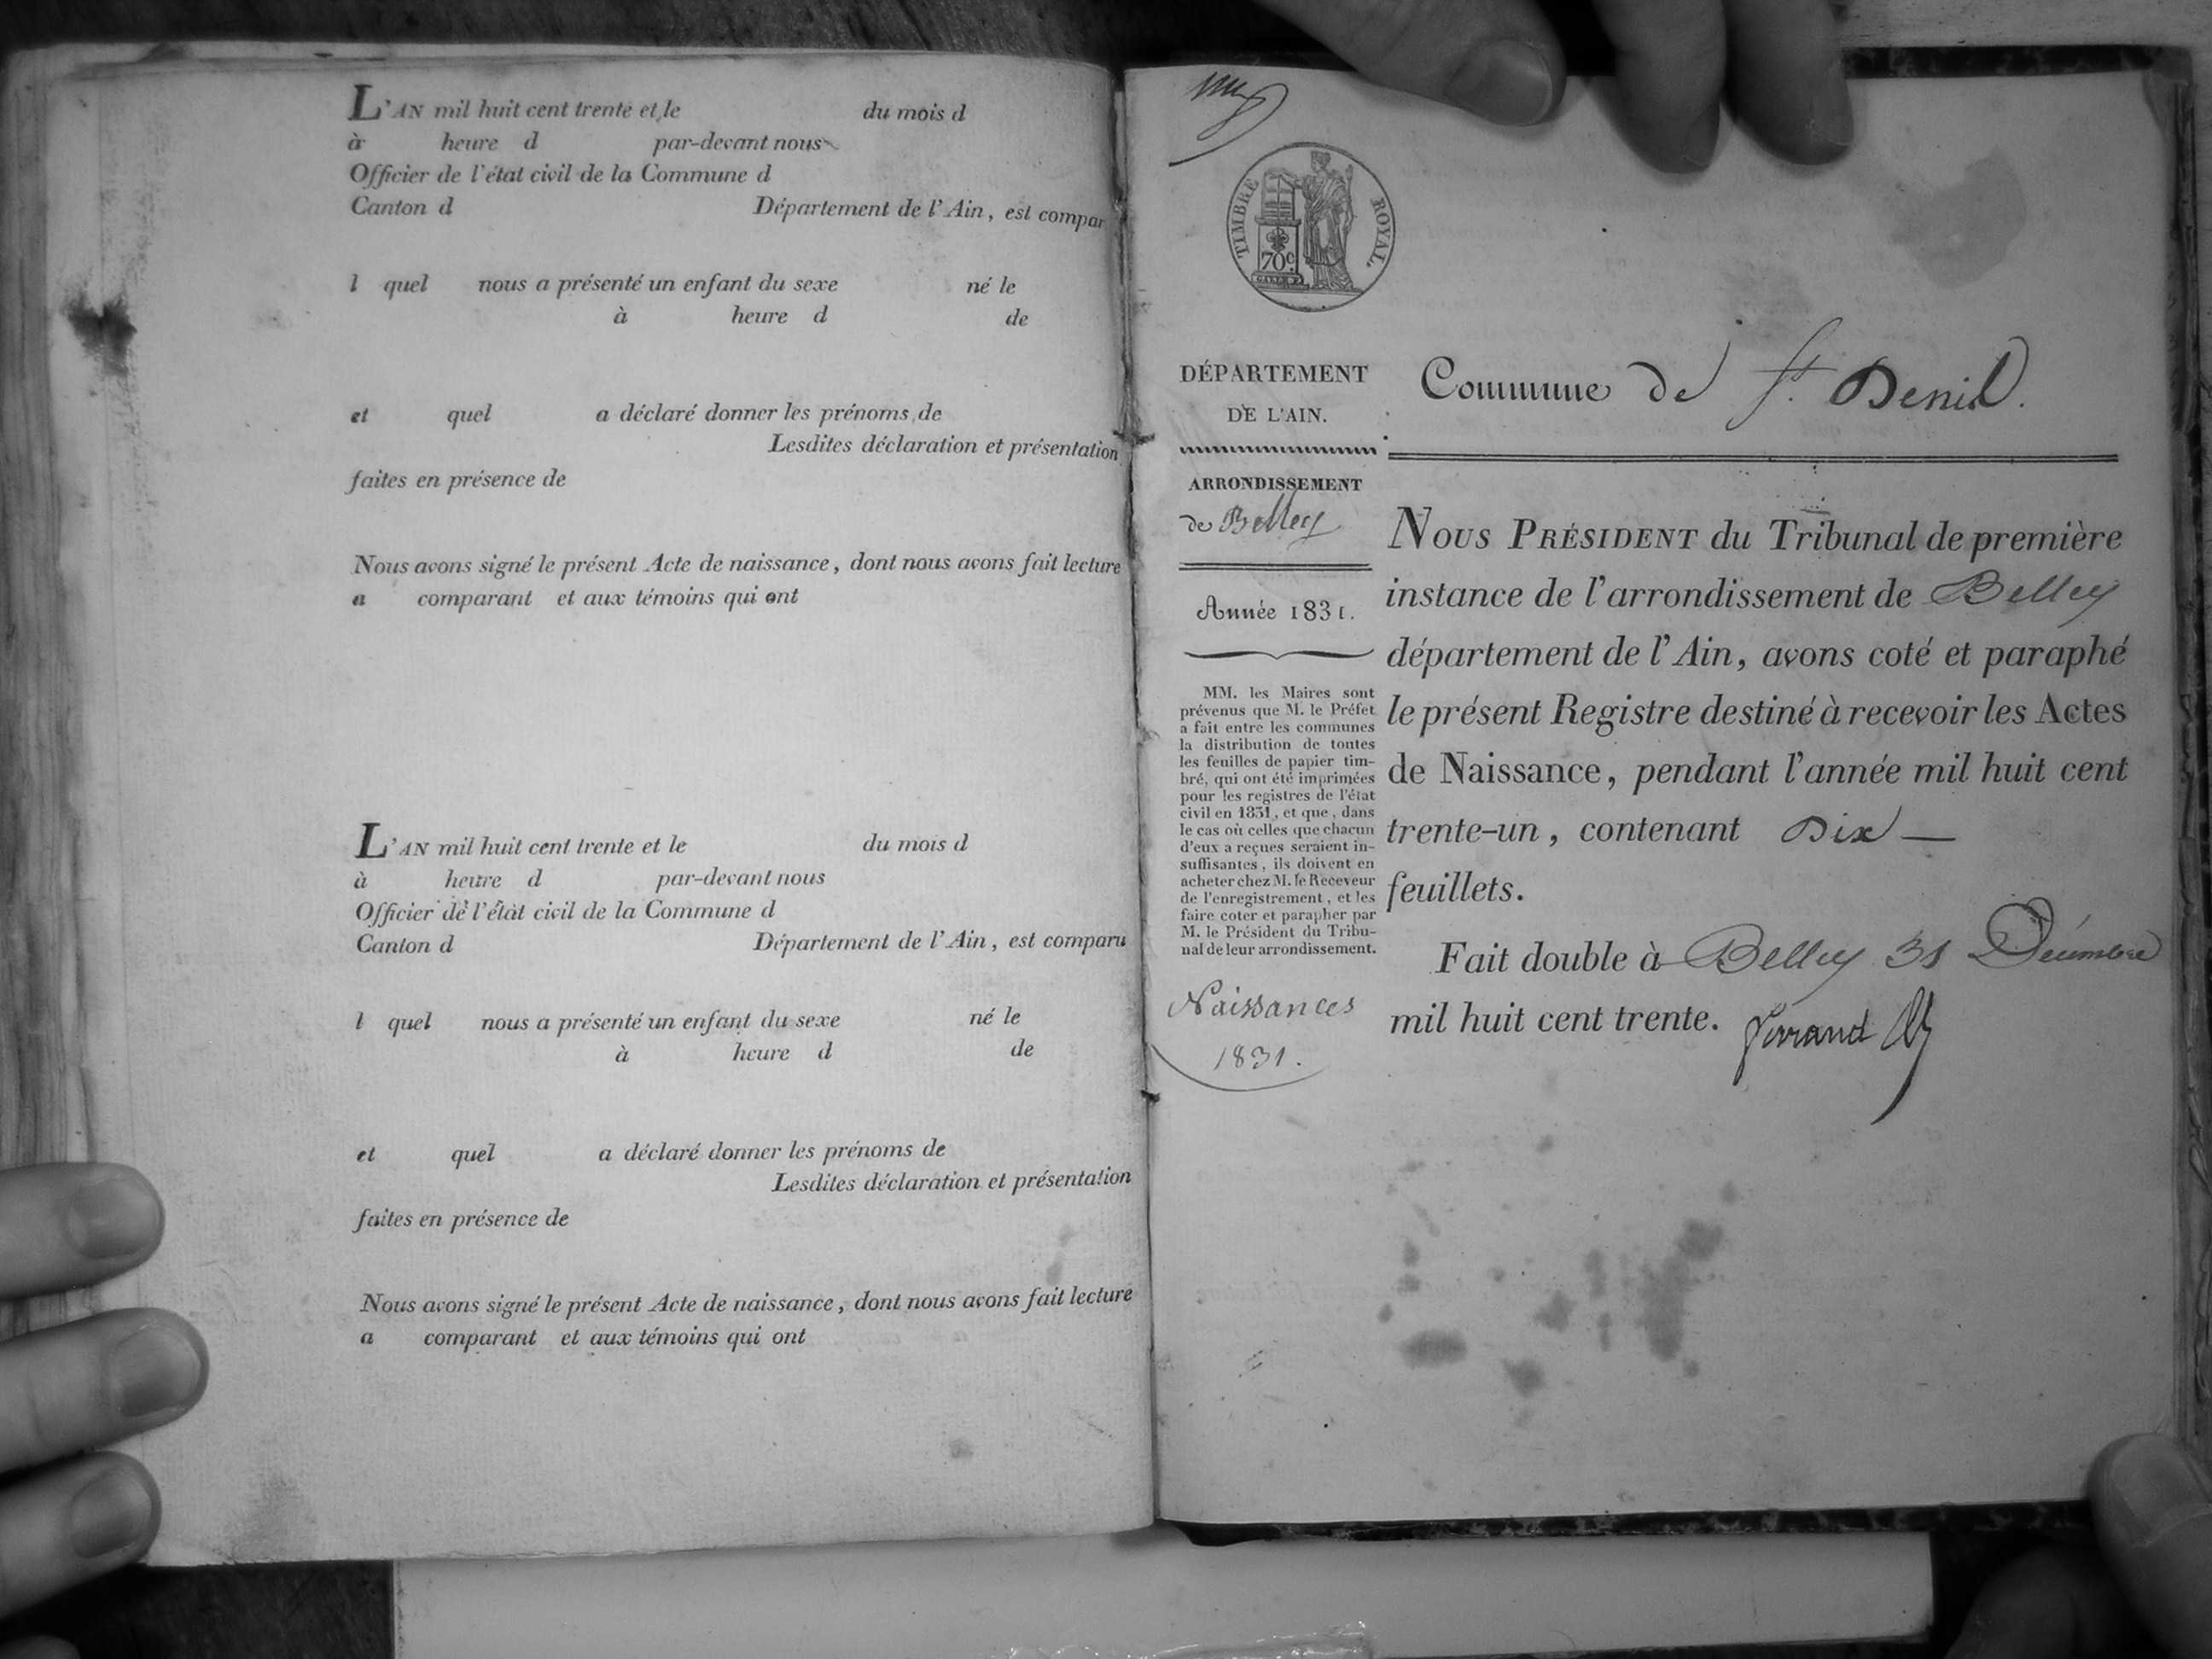 L'AN mil huit cent trente et le du mois d
à heure d par-devant nous
Officier de l'état civil de la Commune d
Canton d Département de l'Ain, est compar
l quel nous a présenté un enfant du sexe né le
à heure d de
et quel a déclaré donner les prénoms de
Lesdites déclaration et présentation
faites en présence de
Nous avons signé le présent Acte de naissance, dont nous avons fait lecture
a comparant et aux témoins qui ont
L'AN mil huit cent trente et le du mois d
à heure d par-devant nous
Officier de l'état civil de la Commune d
Canton d Département de l'Ain, est comparu
l quel nous a présenté un enfant du sexe né le
à heure d de
et quel a déclaré donner les prénoms de
Lesdites déclaration et présentation
faites en présence de
Nous avons signé le présent Acte de naissance, dont nous avons fait lecture
a comparant et aux témoins qui ont
TIMBRE ROYAL.
70c.
DÉPARTEMENT
DE L'AIN.
ARRONDISSEMENT
de Belley
Année 1831.
MM. les Maires sont
prévenus que M. le Préfet
a fait entre les communes
la distribution de toutes
les feuilles de papier tim-
bré, qui ont été imprimées
pour les registres de l'état
civil en 1831, et que, dans
le cas où celles que chacun
d'eux a reçues seraient in-
suffisantes, ils doivent en
acheter chez M. le Receveur
de l'enregistrement, et les
faire coter et parapher par
M. le Président du Tribu-
nal de leur arrondissement.
Naissances
1831.
Commune de St. Denis.
NOUS PRÉSIDENT du Tribunal de première
instance de l'arrondissement de Belley
département de l'Ain, avons coté et paraphé
le présent Registre destiné à recevoir les Actes
de Naissance, pendant l'année mil huit cent
trente-un, contenant Dix
feuillets.
Fait double à Belley 31 Décembre
mil huit cent trente.